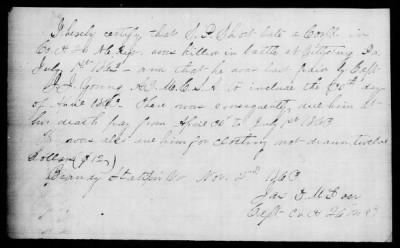 I hereby certify that S. P. Short late a Corpl in
Co. A 26 N.C. Reg. was killed in battle at Gettysburg Pa
July 1st 1863 – and that he was last paid by Capt
J. J. Young A.Q.M. C.S.A. to include the 30th day
of 1863. There was consequently due him at
his death pay from to July 1st 1863
was also due him for clothing not drawn twelve
dollars ($12.)
Brandy Station Va Nov. 2nd 1863
Jas. D. McBoer
Capt Co A 26 N.C.